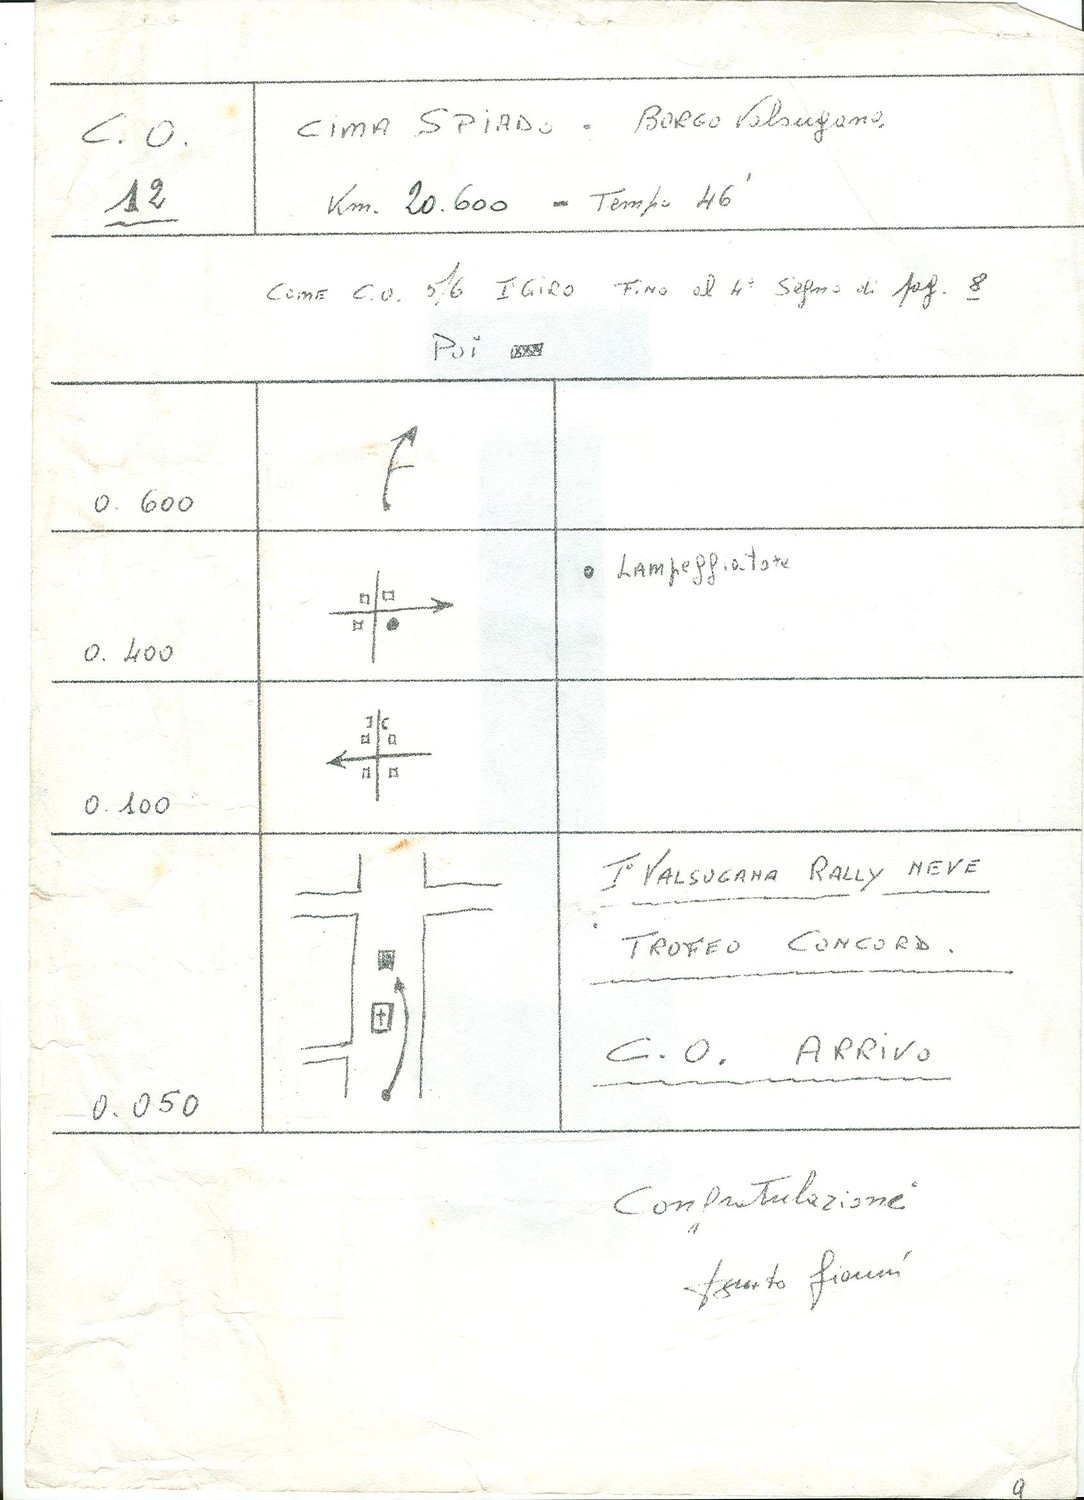 C. O.
12
CIMA SPIADO - BORGO Valsugana
Km. 20.600 - Tempo 46'
COME C.O. 5/6 I GIRO FINO al 4° Segno di pag. 8
Poi
0. 600
0. 400
• LAMPEggiatore
0. 100
I° VALSUGANA RALLY NEVE
TROFEO CONCORD.
C. O. ARRIVO
0. 050
Congratulazioni
9